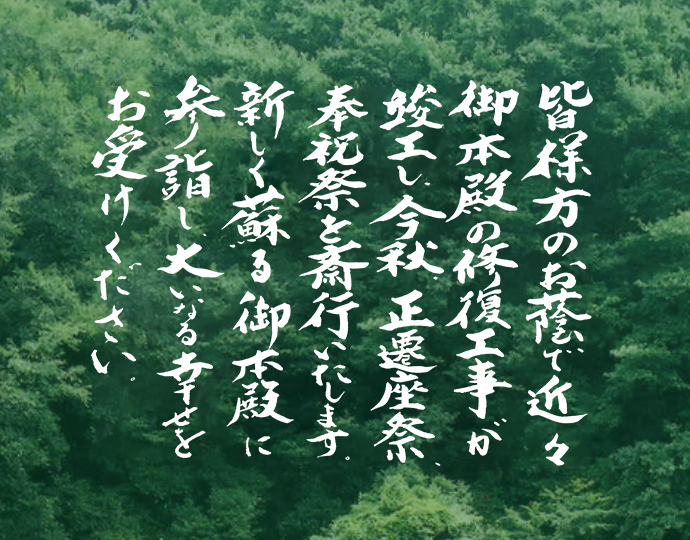 皆様方のお蔭で近々
御本殿の修復工事が
竣工し、今秋、正遷座祭、
奉祝祭を斎行いたします。
新しく蘇る御本殿に
参り詣し、大いなる幸せを
お受けください。